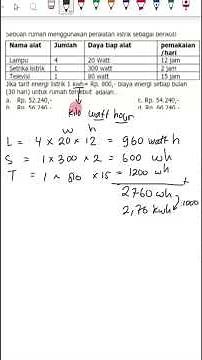 Sebuah rumah menggunakan peralatan listrik sebagai berikut:
Nama alat Jumlah Daya tiap alat pemakaian /hari
Lampu 4 20 Watt 12 jam
Setrika listrik 1 300 watt 2 jam
Televisi 1 80 watt 15 jam
Jika tarif energi listrik 1 kwh= Rp. 800,- biaya energi setiap bulan
(30 hari) untuk rumah tersebut adalah
a. Rp. 52.240,- c. Rp. 54.240,-
kilo watt hour
w h
L = 4 × 20 × 12 = 960 watt h
S = 1 × 300 × 2 = 600 wh
T = 1 × 80 × 15 = 1200 wh
2760 wh
:1000
2,76 kwh